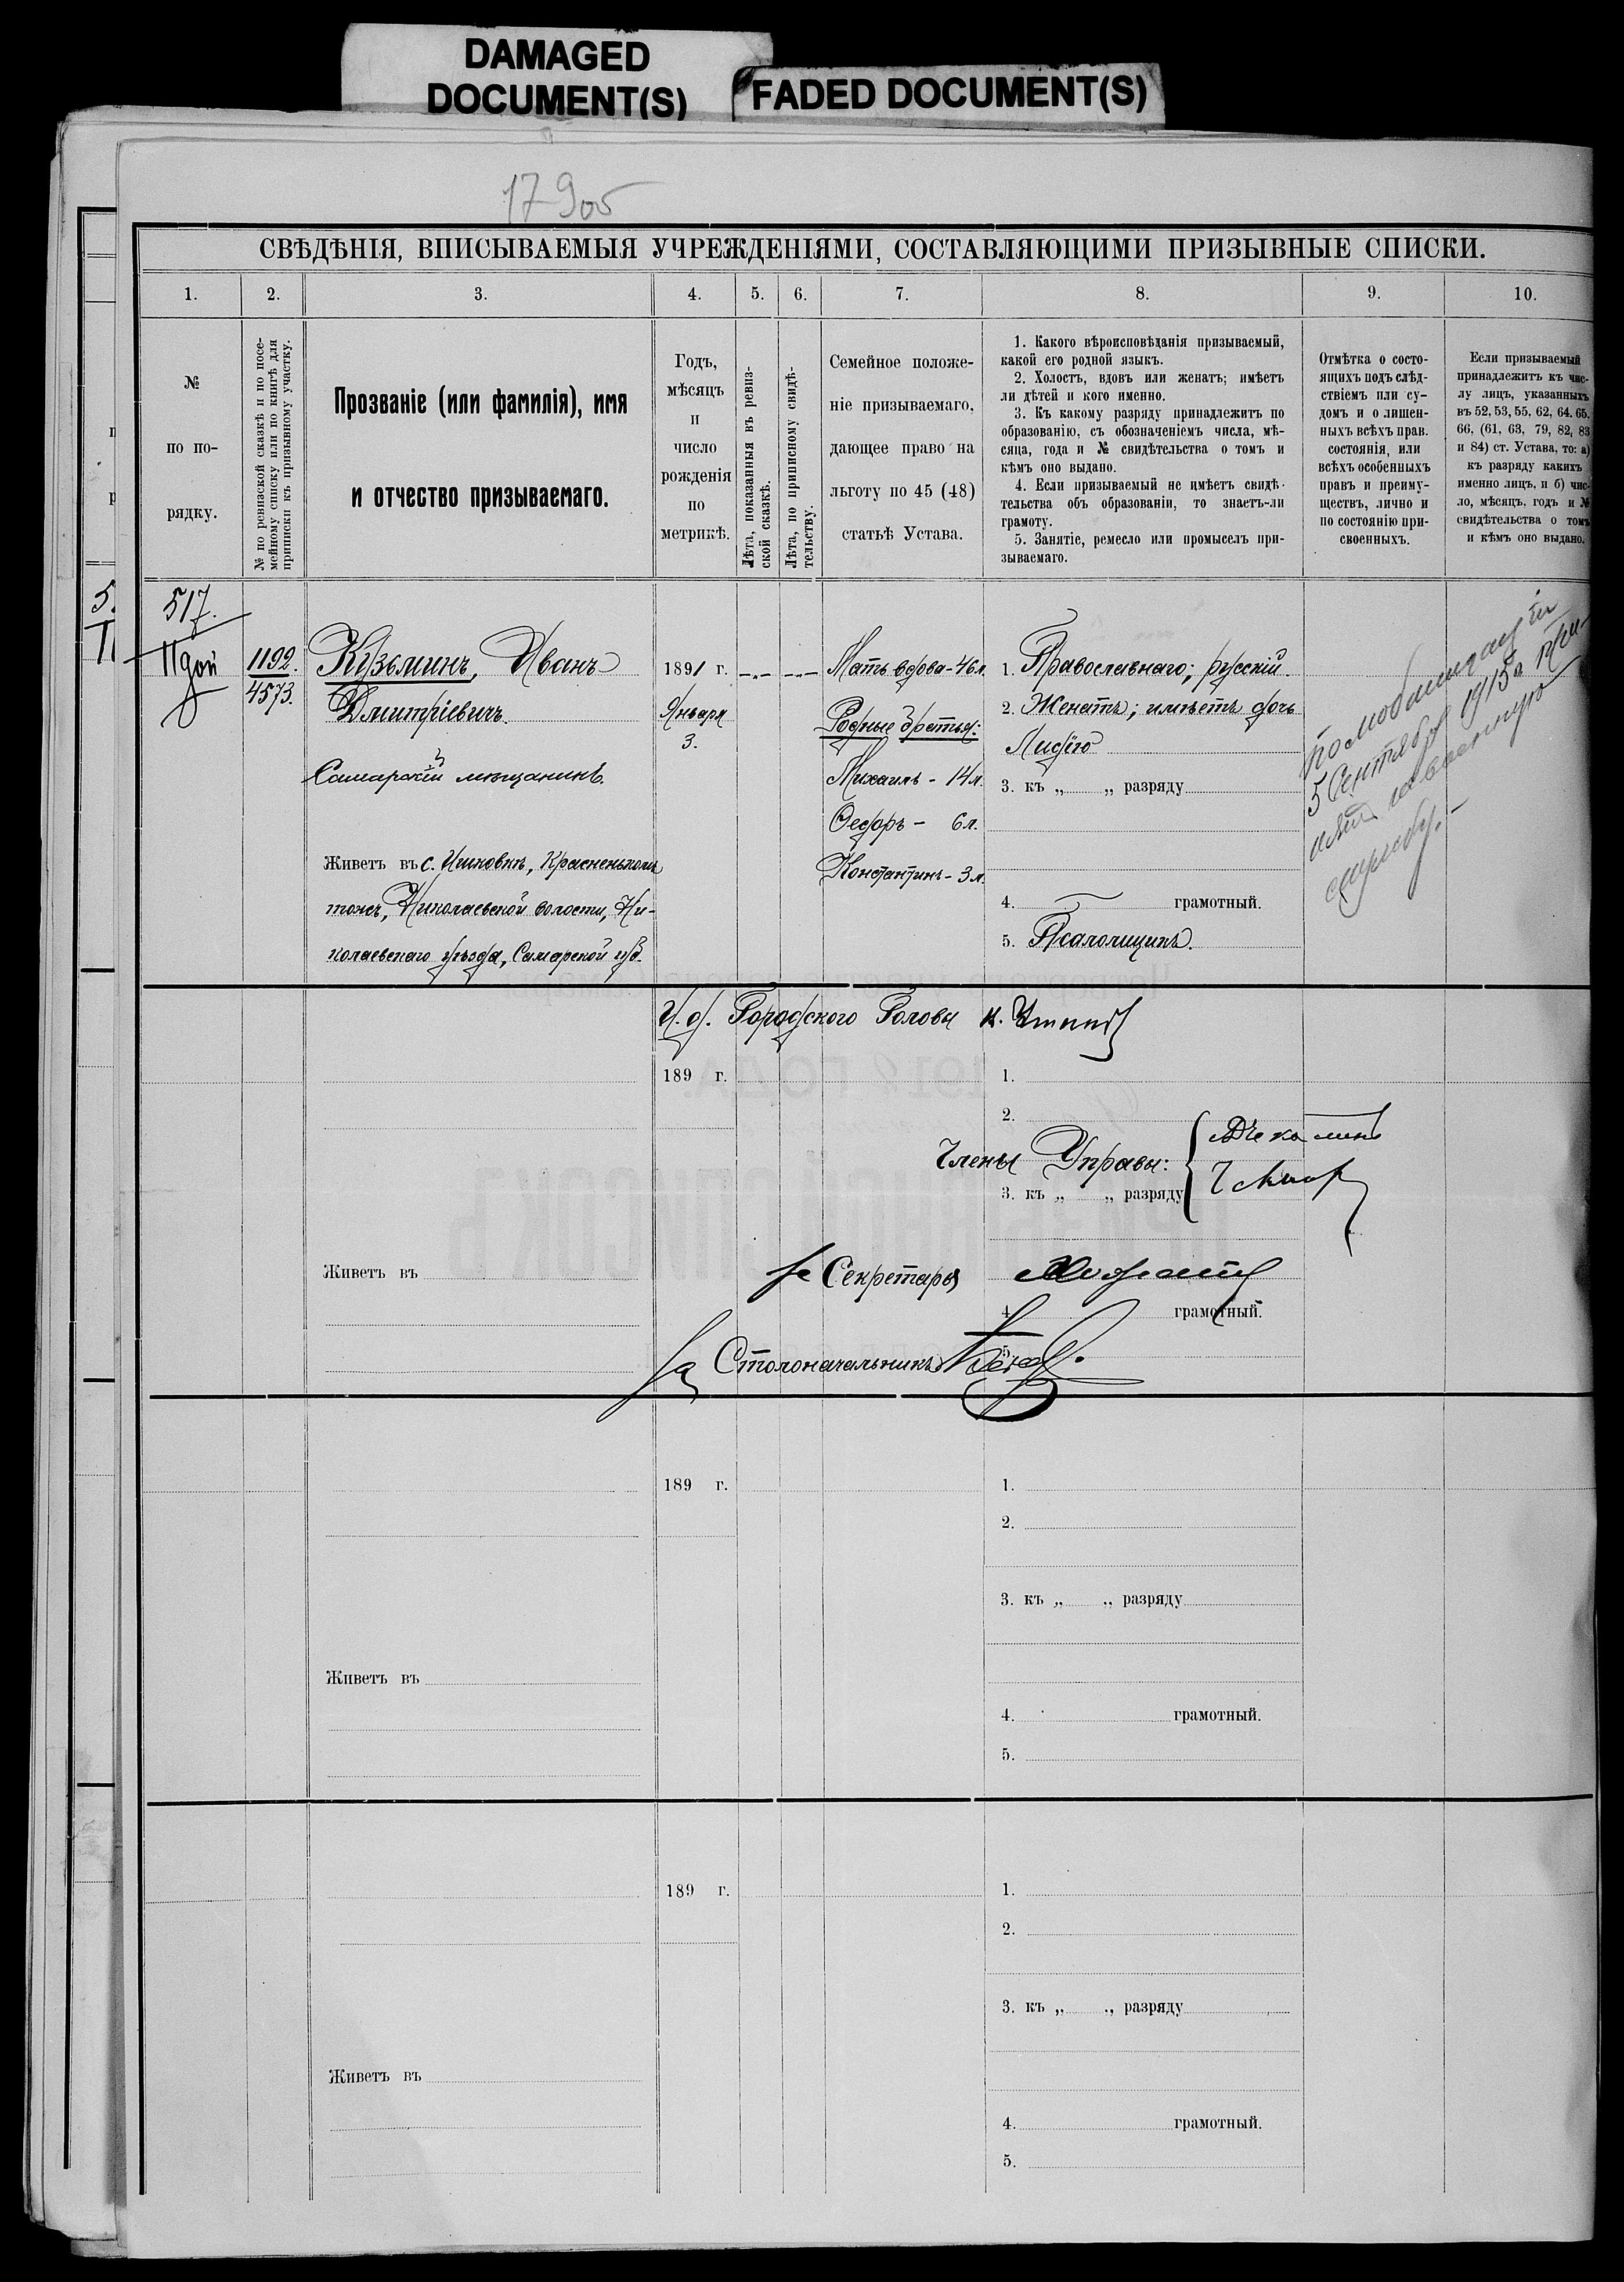 DAMAGED
DOCUMENT(S)
FADED DOCUMENT(S)
179об
СВѢДѢНІЯ, ВПИСЫВАЕМЫЯ УЧРЕЖДЕНІЯМИ, СОСТАВЛЯЮЩИМИ ПРИЗЫВНЫЕ СПИСКИ.
1. 2. 3. 4. 5. 6. 7. 8. 9. 10.
№
по по-
рядку.
№ по ревизской сказкѣ и по посе-
мейному списку или по книгѣ для
приписки къ призывному участку.
Прозваніе (или фамилія), имя
и отчество призываемаго.
Годъ,
мѣсяцъ
и
число
рожденія
по
метрикѣ.
Лѣта, показанныя въ ревиз-
ской сказкѣ.
Лѣта, по приписному свидѣ-
тельству.
Семейное положе-
ніе призываемаго,
дающее право на
льготу по 45 (48)
статьѣ Устава.
1. Какого вѣроисповѣданія призываемый,
какой его родной языкъ.
2. Холостъ, вдовъ или женатъ; имѣетъ
ли дѣтей и кого именно.
3. Къ какому разряду принадлежитъ по
образованію, съ обозначеніемъ числа, мѣ-
сяца, года и № свидѣтельства о томъ и
кѣмъ оно выдано.
4. Если призываемый не имѣетъ свидѣ-
тельства объ образованіи, то знаетъ-ли
грамоту.
5. Занятіе, ремесло или промыселъ при-
зываемаго.
Отмѣтка о состо-
ящихъ подъ слѣд-
ствіемъ или су-
домъ и о лишен-
ныхъ всѣхъ прав.
состоянія, или
всѣхъ особенныхъ
правъ и преиму-
ществъ, лично и
по состоянію при-
своенныхъ.
Если призываемый
принадлежитъ къ чис-
лу лицъ, указанныхъ
въ 52, 53, 55, 62, 64, 65,
66, (61, 63, 79, 82, 83
и 84) ст. Устава, то: а)
къ разряду какихъ
именно лицъ, и б) чис-
ло, мѣсяцъ, годъ и №
свидѣтельства о томъ
и кѣмъ оно выдано.
517.
1192.
4573.
Кузьминъ, Иванъ
Дмитріевичъ.
Самарскій мѣщанинъ
Живетъ въ с.
тожъ, Николаевской волости, Ни-
колаевскаго уѣзда, Самарской губ.
1891 г.
Января
3.
Мать вдова - 46 л.
Родные братья:
Михаилъ - 14 л.
Ѳедоръ - 6 л.
Константинъ - 3 л.
1. Православнаго; русскій.
2. Женатъ; имѣетъ дочь
Лидію
3. къ „ „ разряду
4. грамотный.
5. Псаломщикъ.
по мобилизаціи
5 Сентября 1915 г. при-
нятъ на военную
службу. -
И. д. Городского Головы
189 г.
1.
2.
Члены Управы:
3. къ „ „ разряду
Живетъ въ
Секретарь
4. грамотный.
За Столоначальника
189 г.
1.
2.
3. къ „ „ разряду
Живетъ въ
4. грамотный.
5.
189 г.
1.
2.
3. къ „ „ разряду
Живетъ въ
4. грамотный.
5.